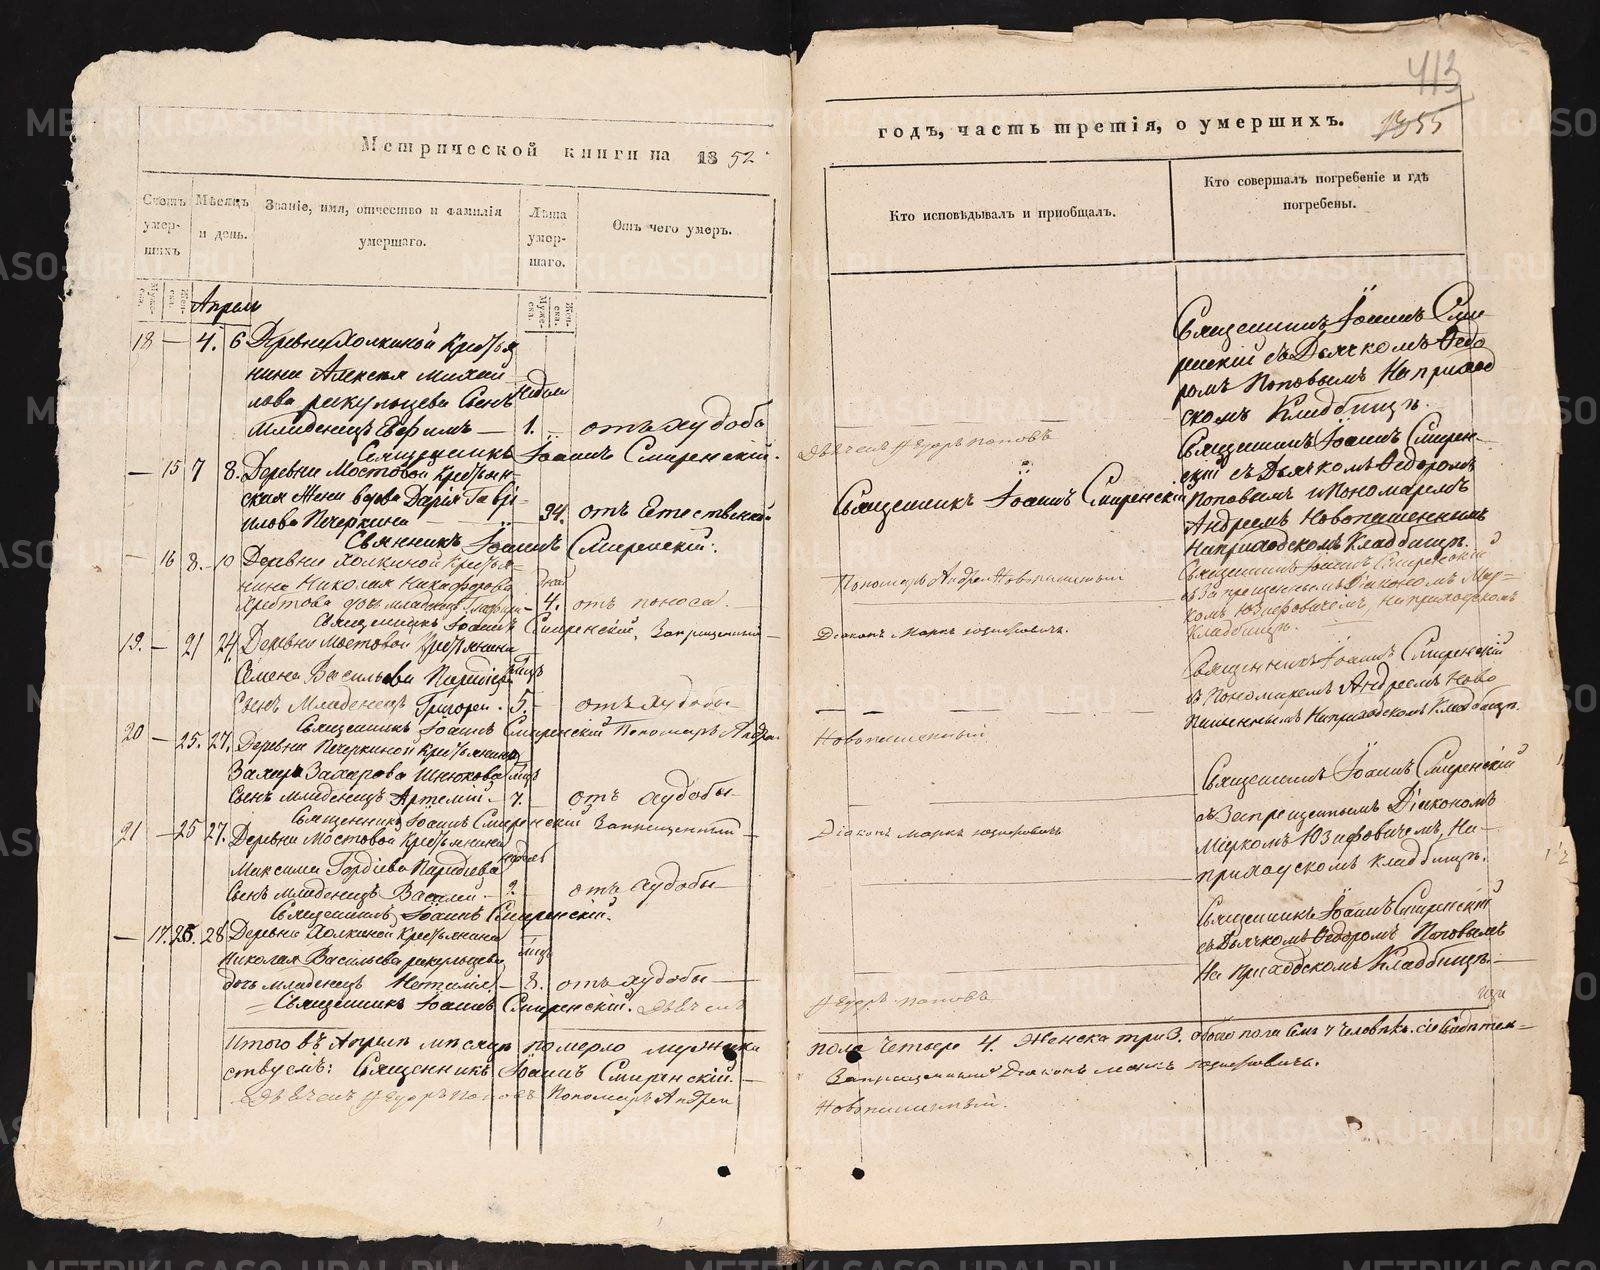 Метрической книги на 1852
Счетъ умершихъ
Мѣсяцъ и день.
Званіе, имя, отчество и фамилія умершаго.
Лѣта умершаго.
Отъ чего умеръ.
Апрель
18 — 4. 6 Деревни Холкиной Крестья
нина Алексея Михай
лова сынъ недели
Младенецъ Евфимъ — 1. — отъ худобы
Священникъ Іоаннъ Смиренскій.
— 15 7 8. Деревни Мостовой Крестьян
ская Жена вдова Дарія Гаврі
илова Печеркина — 94. отъ Естественной
Свянникъ Іоаннъ Смиренскій.
— 16 8. 10 Деревни Холкиной Крестья
нина Николая Никифорова
дочь младенецъ — 4. отъ поноса
Священникъ Іоаннъ Смиренскій, Запрещенный
19. — 21 24. Деревни Мостовой Крестьянина
Семена Васильева
Сынъ Младенецъ Григорей. 5. — отъ худобы
Священникъ Іоаннъ Смиренскій Пономарь Андрей
20 — 25. 27. Деревни Печеркиной Крестьянина
Захара Захарова мцъ
Сынъ младенецъ Артемій. — 7. — отъ худобы
Священникъ Іоаннъ Смиренскій Запрещенный
21 — 25 27. Деревни Мостовой Крестьянина
Максима Гордіева недель
Сынъ младенецъ Василей — 2 — отъ худобы
Священникъ Іоаннъ Смиренскій.
— 17. 26. 28 Деревни Холкиной Крестьянина
Николая Васильева мцъ
дочь младенецъ — 8. отъ худобы
Священникъ Іоаннъ Смиренскій. Дьячекъ
Итого въ Апреле месяце померло мужеска
ствуемъ: Священникъ Іоаннъ Смиренскій.
Дьячекъ Ѳедоръ Поповъ Пономарь Андрей
413
годъ, часть третія, о умершихъ. 1355
Кто исповѣдывалъ и пріобщалъ.
Кто совершалъ погребеніе и гдѣ погребены.
Священникъ Іоаннъ Сми
ренскій съ Дьячкомъ Ѳедо
ромъ Поповымъ На приход
скомъ Кладбищѣ.
Дьячекъ Ѳедоръ Поповъ
Священникъ Іоаннъ Смирен
скій съ Дьячкомъ Ѳедоромъ
Священникъ Іоаннъ Смиренскій
Поповымъ и Пономаремъ
Андреемъ Новопашеннымъ
На приходскомъ Кладбищѣ.
Пономарь Андрей Новопашенный
Священникъ Іоаннъ Смиренскій
съ Запрещеннымъ Діакономъ Мар
комъ Юзифовичемъ, На приходскомъ
Кладбищѣ.
Діаконъ Маркъ Юзифовичъ.
Священникъ Іоаннъ Смиренскій
съ Пономаремъ Андреемъ Ново
пашеннымъ На приходскомъ Кладбищѣ.
Новопашенный
Священникъ Іоаннъ Смиренскій
съ Запрещеннымъ Діакономъ
Діаконъ Маркъ Юзифовичъ
Маркомъ Юзифовичемъ, На
приходскомъ кладбищѣ.
Священникъ Іоаннъ Смиренскій
съ Дьячкомъ Ѳедоромъ Поповымъ
На Приходскомъ Кладбищѣ.
Ѳедоръ Поповъ
пола Четыре 4. Женска три 3. обоего пола семь 7 Человѣкъ.
Запрещенный Діаконъ Маркъ Юзифовичъ.
Новопашенный.
METRIKI.GASO-URAL.RU